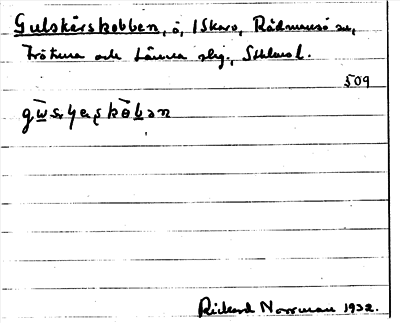 Gulskärskobben, ö, I Skaro, Rådmansö sn,
Frötuna och Länna slg., Sthlms l.
509
Rickard Norrman 1932.